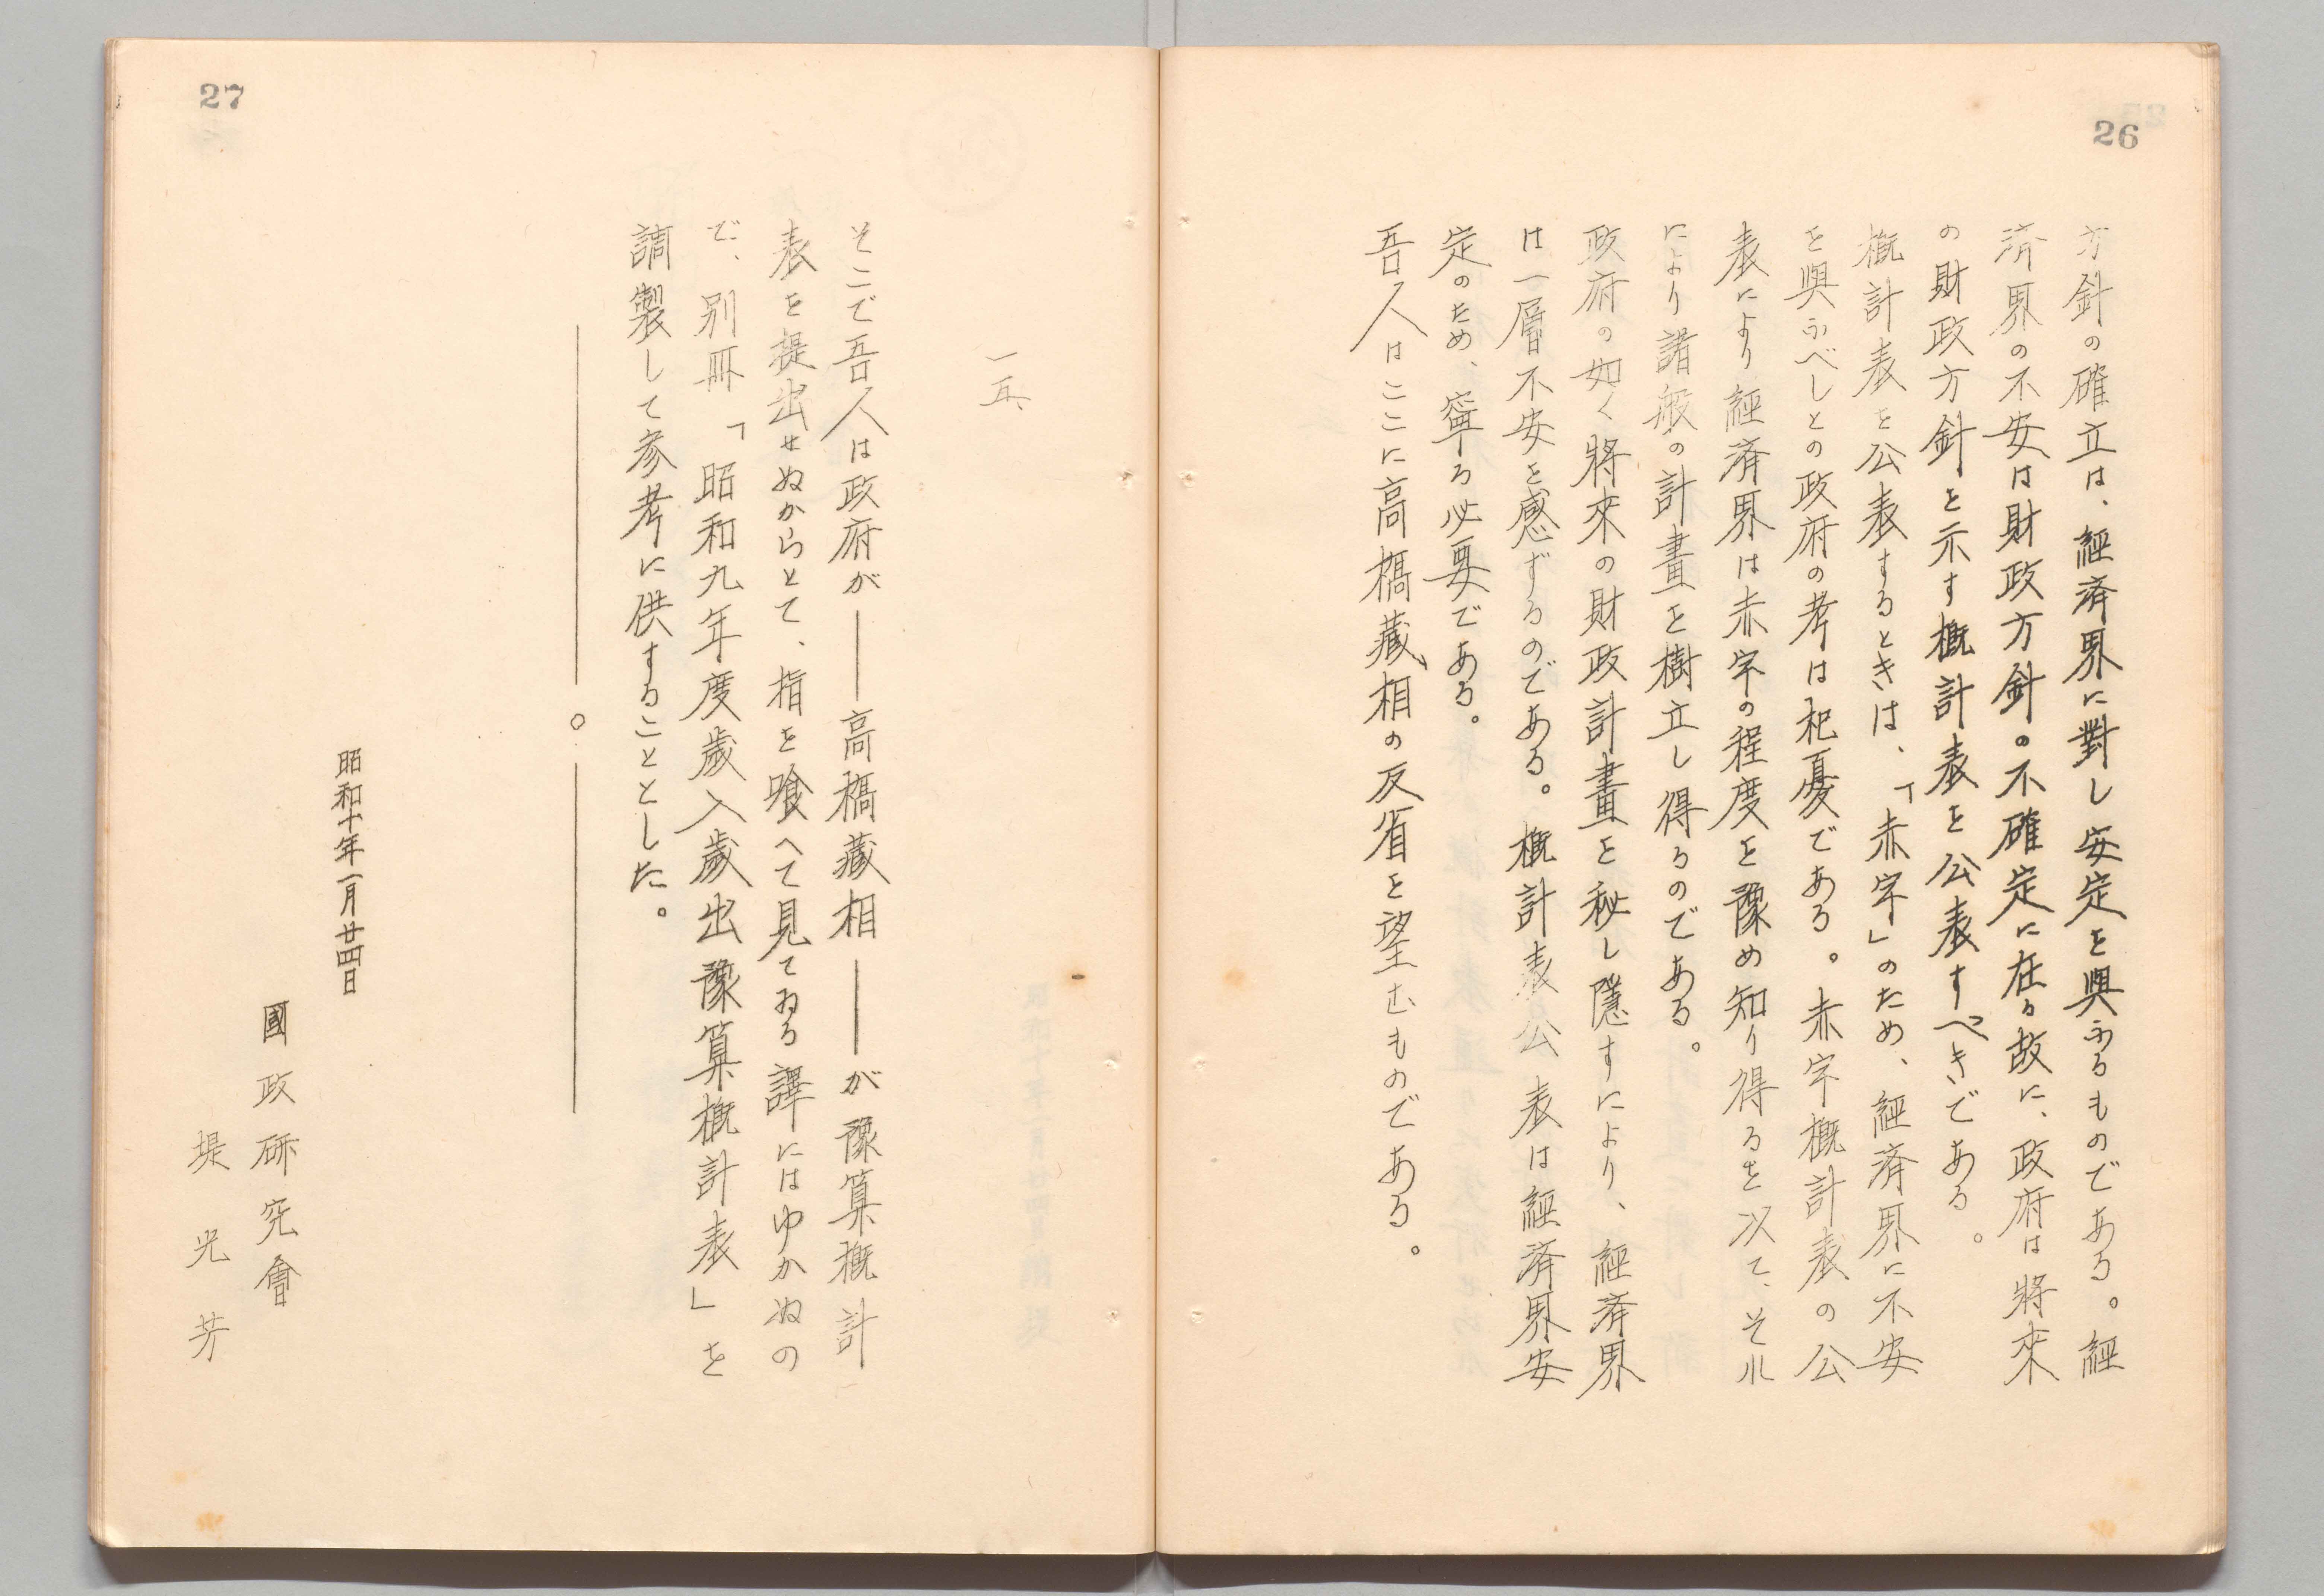 26
方針の確立は、經済界に對し安定を與ふるものである。經
済界の不安は財政方針の不確定に在る故に、政府は將來
の財政方針を示す概計表を公表すべきである。
概計表を公表するときは、「赤字」のため、經済界に不安
を與ふべしとの政府の考は杞憂である。赤字概計表の公
表により經済界は赤字の程度を豫め知り得るを以て、それ
により諸般の計畫を樹立し得るのである。
政府の如く將來の財政計畫を秘し隱すにより、經済界
は一層不安を感ずるのである。概計表公表は經済界安
定のため、寧ろ必要である。
吾人はここに高橋藏相の反省を望むものである。
27
一五、
そこで吾人は政府が――高橋藏相――が豫算概計
表を提出せぬからとて、指を喰へて見てゐる譯にはゆかぬの
で、別冊「昭和九年度歳入歳出豫算概計表」を
調製して参考に供することとした。
――。――
昭和十年一月廿四日
國政研究會
堤光芳